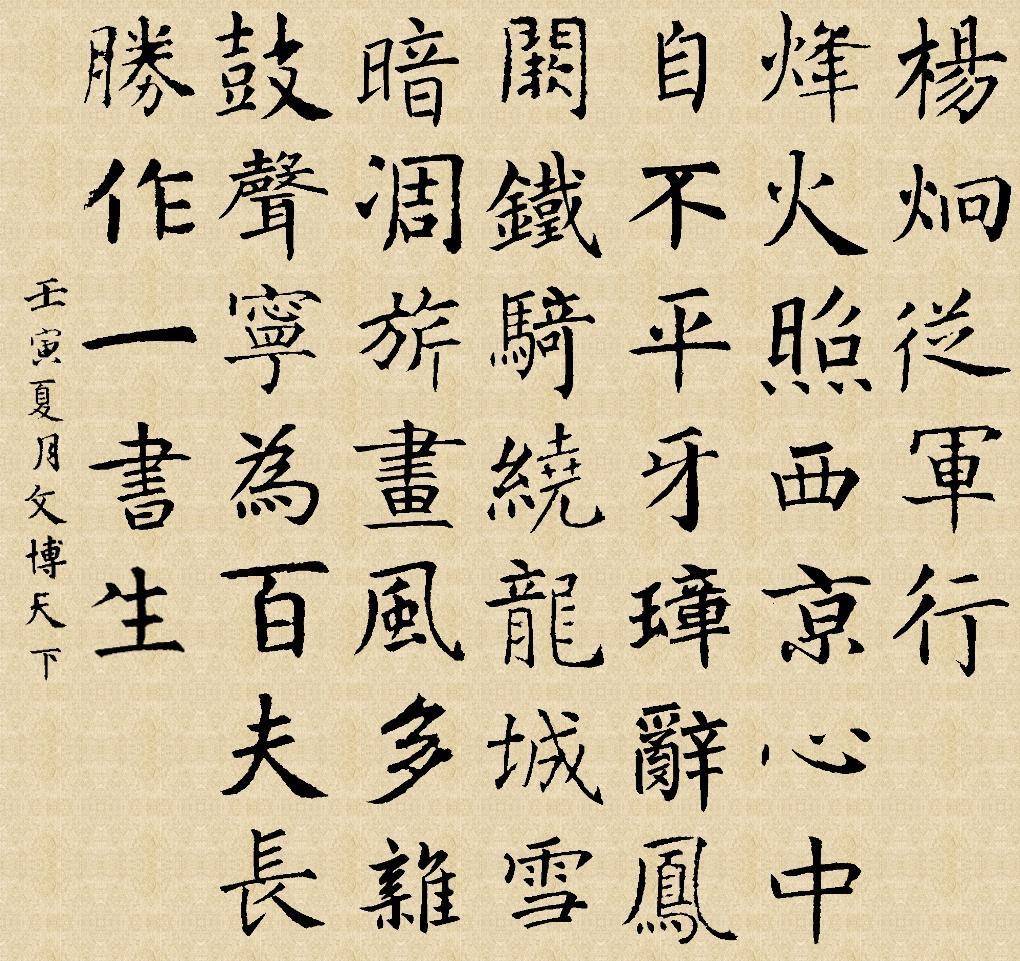 楊炯從軍行
烽火照西京心中
自不平牙璋辭鳳
闕鐵騎繞龍城雪
暗凋旂畫風多雜
鼓聲寧為百夫長
勝作一書生
壬寅夏月文博天下